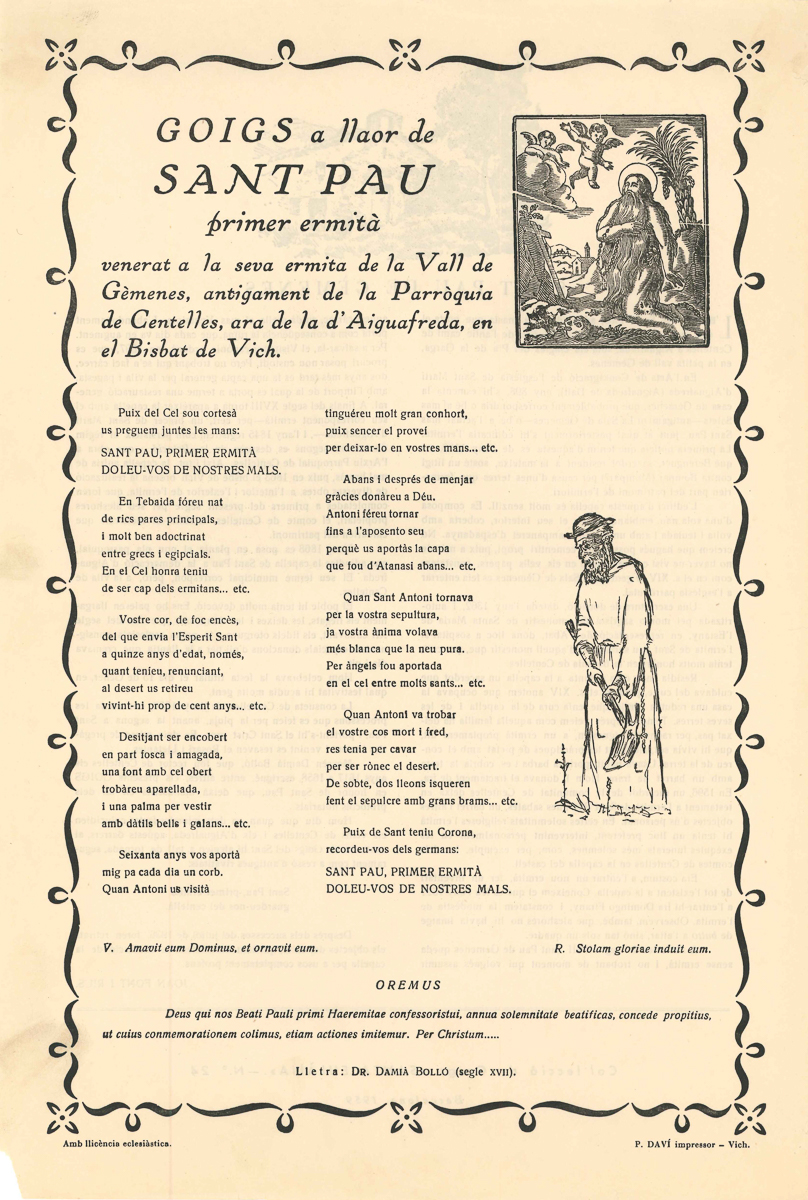 GOIGS a llaor de
SANT PAU
primer ermità
venerat a la seva ermita de la Vall de
Gèmenes, antigament de la Parròquia
de Centelles, ara de la d'Aiguafreda, en
el Bisbat de Vich.
Puix del Cel sou cortesà
us preguem juntes les mans:
SANT PAU, PRIMER ERMITÀ
DOLEU-VOS DE NOSTRES MALS.
En Tebaida fóreu nat
de rics pares principals,
i molt ben adoctrinat
entre grecs i egipcials.
En el Cel honra teniu
de ser cap dels ermitans... etc.
Vostre cor, de foc encès,
del que envia l'Esperit Sant
a quinze anys d'edat, només,
quant teníeu, renunciant,
al desert us retireu
vivint-hi prop de cent anys... etc.
Desitjant ser encobert
en part fosca i amagada,
una font amb cel obert
trobàreu aparellada,
i una palma per vestir
amb dàtils bells i galans... etc.
Seixanta anys vos aportà
mig pa cada dia un corb.
Quan Antoni us visità
tinguéreu molt gran conhort,
puix sencer el proveí
per deixar-lo en vostres mans... etc.
Abans i després de menjar
gràcies donàreu a Déu.
Antoni féreu tornar
fins a l'aposento seu
perquè us aportàs la capa
que fou d'Atanasi abans... etc.
Quan Sant Antoni tornava
per la vostra sepultura,
ja vostra ànima volava
més blanca que la neu pura.
Per àngels fou aportada
en el cel entre molts sants... etc.
Quan Antoni va trobar
el vostre cos mort i fred,
res tenia per cavar
per ser rònec el desert.
De sobte, dos lleons isqueren
fent el sepulcre amb grans brams... etc.
Puix de Sant teniu Corona,
recordeu-vos dels germans:
SANT PAU, PRIMER ERMITÀ
DOLEU-VOS DE NOSTRES MALS.
V. Amavit eum Dominus, et ornavit eum.
R. Stolam gloriae induit eum.
OREMUS
Deus qui nos Beati Pauli primi Haeremitae confessoristui, annua solemnitate beatificas, concede propitius,
ut cuius conmemorationem colimus, etiam actiones imitemur. Per Christum.....
Lletra: DR. DAMIÀ BOLLÓ (segle XVII).
Amb llicència eclesiàstica.
P. DAVÍ impressor – Vich.